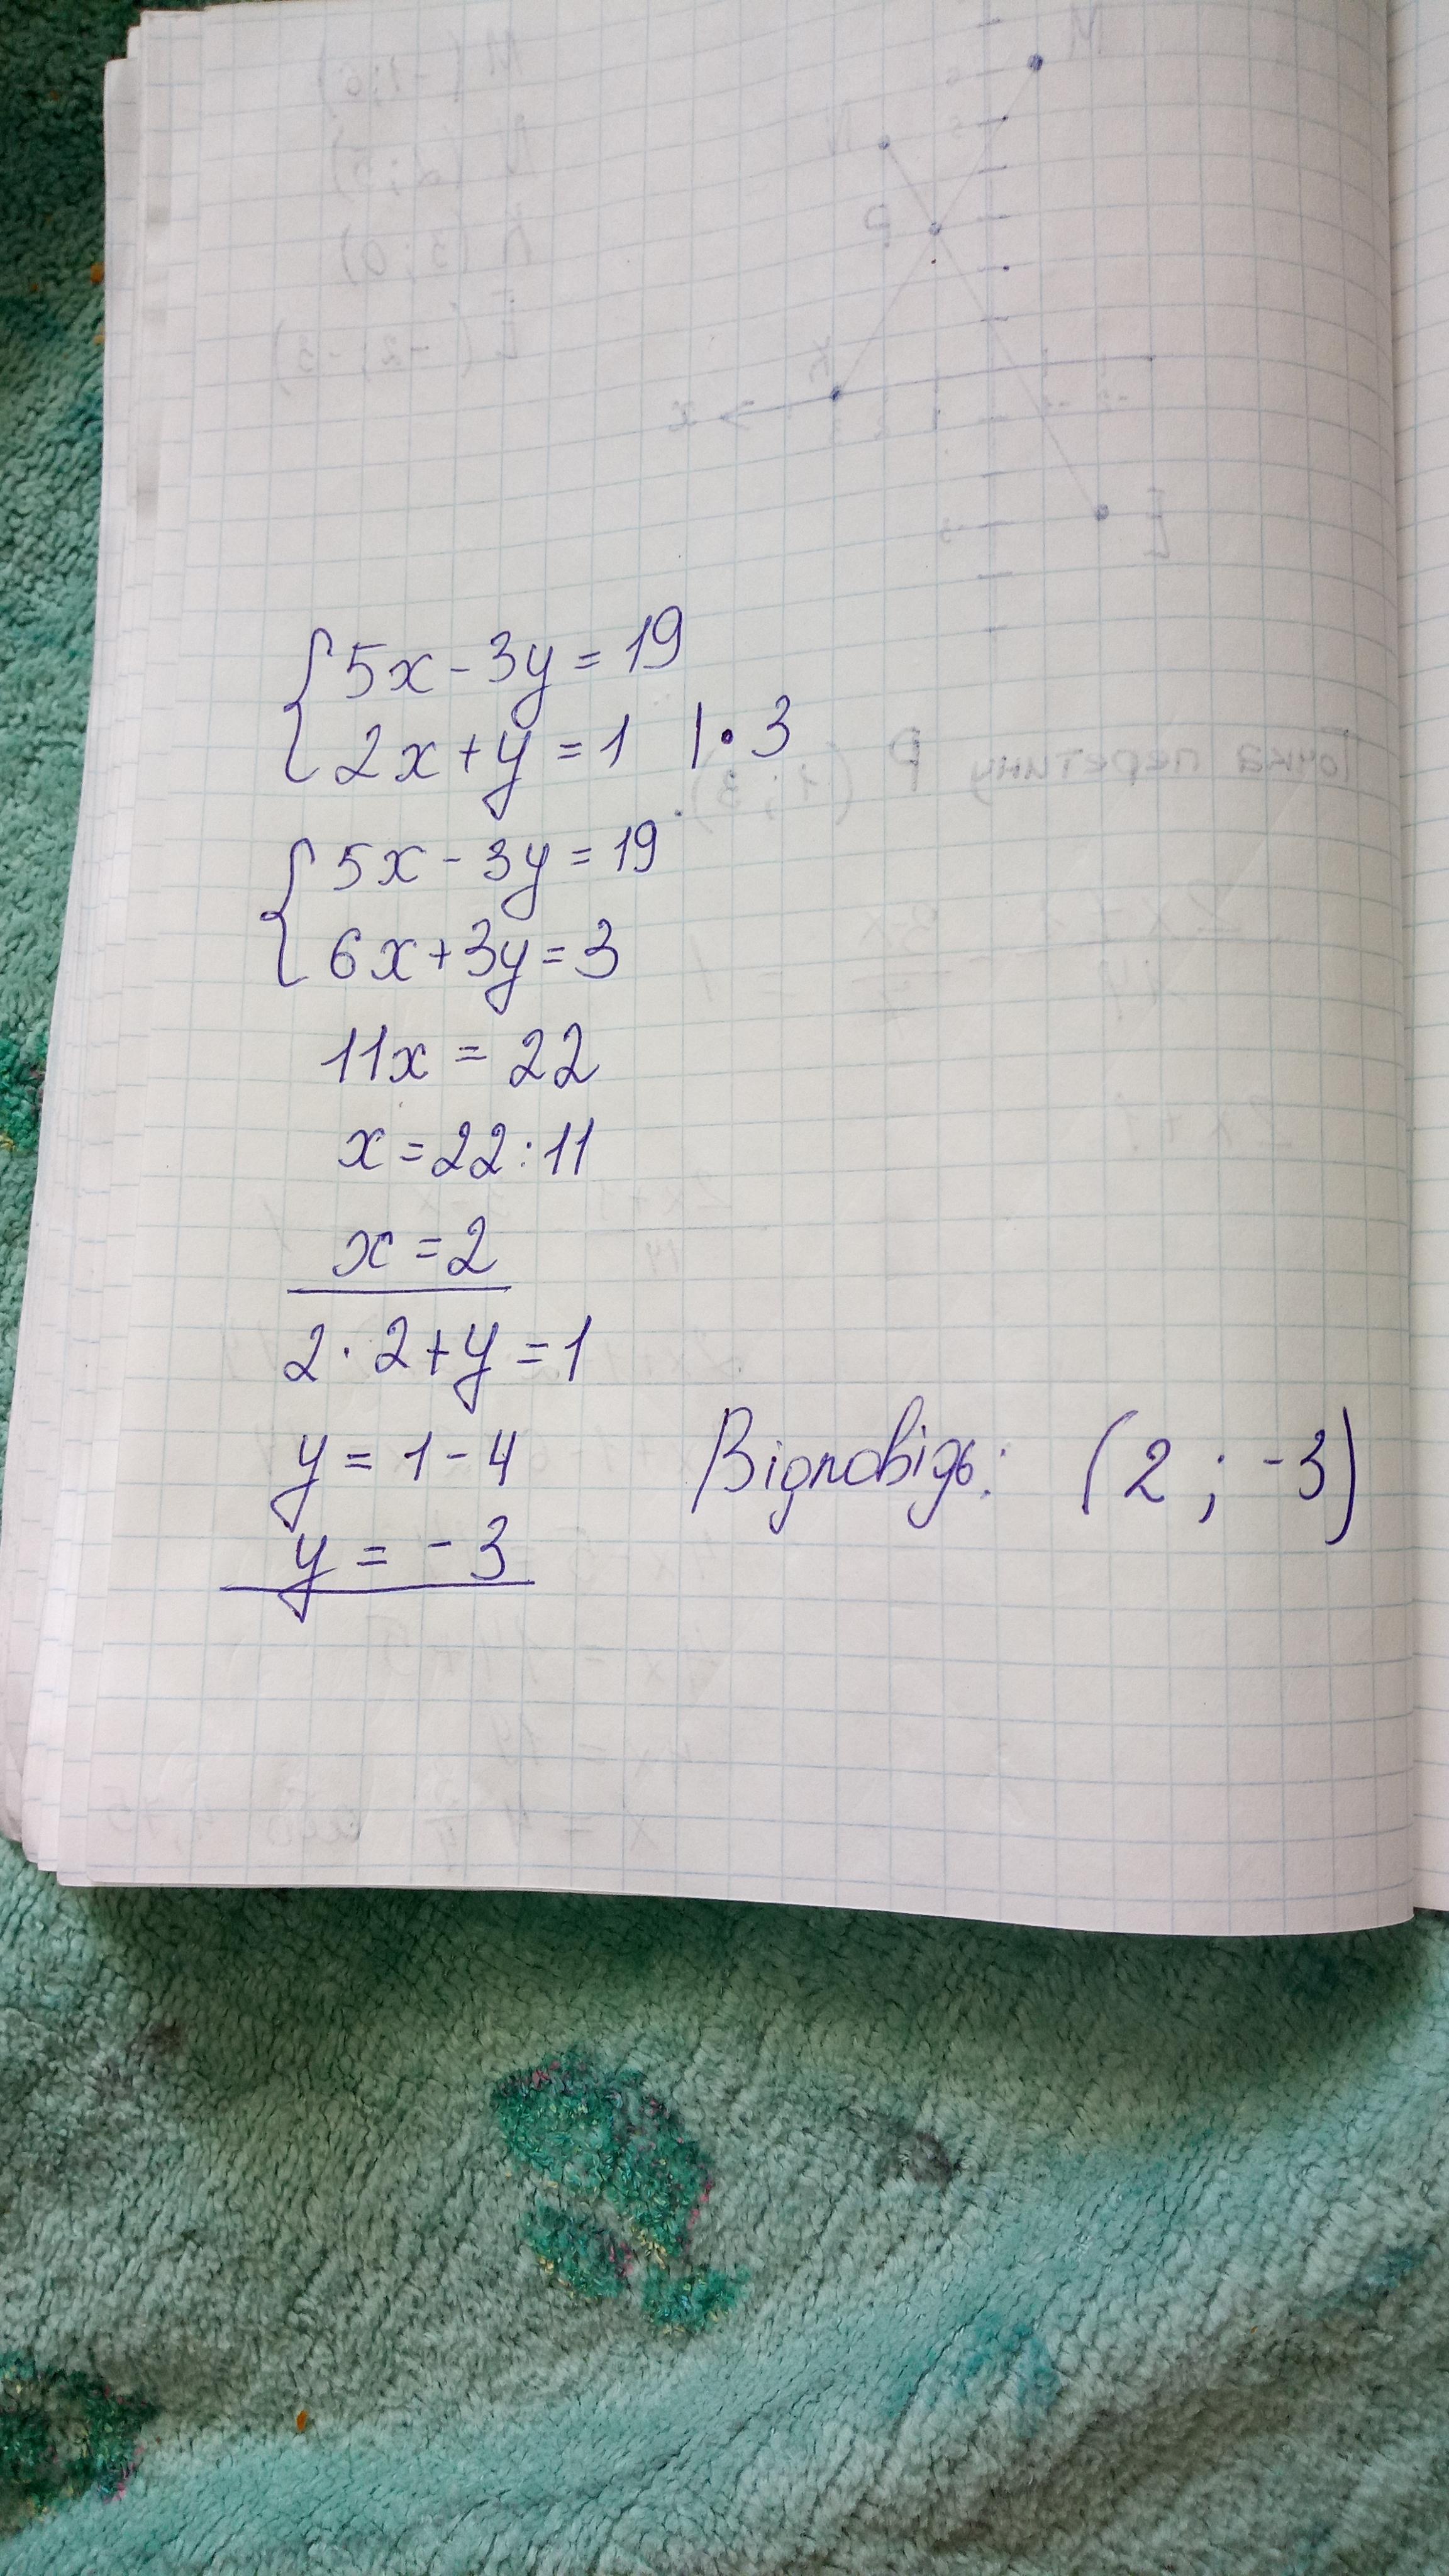 5x - 3y = 19
2x + y = 1 | · 3
5x - 3y = 19
6x + 3y = 3
11x = 22
x = 22 : 11
x = 2
2 · 2 + y = 1
y = 1 - 4
y = -3
Відповідь: (2 ; -3)